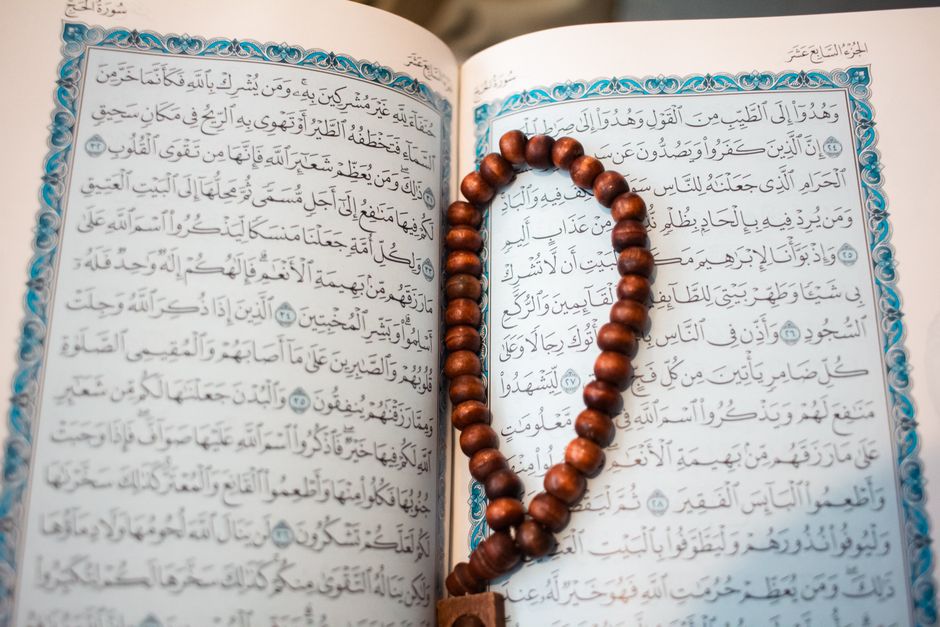 الجُزْءُ السَّابِعَ عَشَرَ
وَهُدُوٓا۟ إِلَى ٱلطَّيِّبِ مِنَ ٱلْقَوْلِ وَهُدُوٓا۟ إِلَىٰ صِرَٰطِ
٢٤ إِنَّ ٱلَّذِينَ كَفَرُوا۟ وَيَصُدُّونَ عَن
ٱلْحَرَامِ ٱلَّذِى جَعَلْنَٰهُ لِلنَّاسِ فِيهِ وَٱلْبَادِ
وَمَن يُرِدْ فِيهِ بِإِلْحَادٍۭ بِظُلْمٍ مِنْ عَذَابٍ أَلِيمٍ
٢٥ وَإِذْ بَوَّأْنَا لِإِبْرَٰهِيمَ أَن لَّا تُشْرِكْ
بِى شَيْـًٔا وَطَهِّرْ بَيْتِىَ لِلطَّآئِفِينَ وَٱلْقَآئِمِينَ وَٱلرُّكَّعِ
ٱلسُّجُودِ ٢٦ وَأَذِّن فِى ٱلنَّاسِ رِجَالًا وَعَلَىٰ
كُلِّ ضَامِرٍ يَأْتِينَ مِن كُلِّ فَجٍّ ٢٧ لِّيَشْهَدُوا۟
مَنَٰفِعَ لَهُمْ وَيَذْكُرُوا۟ ٱسْمَ ٱللَّهِ فِىٓ مَّعْلُومَٰتٍ
عَلَىٰ مَا رَزَقَهُم مِّنۢ بَهِيمَةِ ٱلْأَنْعَٰمِ
وَأَطْعِمُوا۟ ٱلْبَآئِسَ ٱلْفَقِيرَ ٢٨ ثُمَّ
وَلْيُوفُوا۟ نُذُورَهُمْ وَلْيَطَّوَّفُوا۟ بِٱلْبَيْتِ
ذَٰلِكَ وَمَن يُعَظِّمْ حُرُمَٰتِ ٱللَّهِ فَهُوَ خَيْرٌ لَّهُۥ عِندَ
سُورَةُ الحَجِّ
السَّابِعَ عَشَرَ
حُنَفَآءَ لِلَّهِ غَيْرَ مُشْرِكِينَ بِهِۦ ۚ وَمَن يُشْرِكْ بِٱللَّهِ فَكَأَنَّمَا خَرَّ مِنَ
ٱلسَّمَآءِ فَتَخْطَفُهُ ٱلطَّيْرُ أَوْ تَهْوِى بِهِ ٱلرِّيحُ فِى مَكَانٍ سَحِيقٍ
٣١ ذَٰلِكَ وَمَن يُعَظِّمْ شَعَٰٓئِرَ ٱللَّهِ فَإِنَّهَا مِن تَقْوَى ٱلْقُلُوبِ ٣٢
لَكُمْ فِيهَا مَنَٰفِعُ إِلَىٰٓ أَجَلٍ مُّسَمًّى ثُمَّ مَحِلُّهَآ إِلَى ٱلْبَيْتِ ٱلْعَتِيقِ
٣٣ وَلِكُلِّ أُمَّةٍ جَعَلْنَا مَنسَكًا لِّيَذْكُرُوا۟ ٱسْمَ ٱللَّهِ عَلَىٰ
مَا رَزَقَهُم مِّنۢ بَهِيمَةِ ٱلْأَنْعَٰمِ ۗ فَإِلَٰهُكُمْ إِلَٰهٌ وَٰحِدٌ فَلَهُۥٓ
أَسْلِمُوا۟ ۗ وَبَشِّرِ ٱلْمُخْبِتِينَ ٣٤ ٱلَّذِينَ إِذَا ذُكِرَ ٱللَّهُ وَجِلَتْ
قُلُوبُهُمْ وَٱلصَّٰبِرِينَ عَلَىٰ مَآ أَصَابَهُمْ وَٱلْمُقِيمِى ٱلصَّلَوٰةِ
وَمِمَّا رَزَقْنَٰهُمْ يُنفِقُونَ ٣٥ وَٱلْبُدْنَ جَعَلْنَٰهَا لَكُم مِّن شَعَٰٓئِرِ
ٱللَّهِ لَكُمْ فِيهَا خَيْرٌ ۖ فَٱذْكُرُوا۟ ٱسْمَ ٱللَّهِ عَلَيْهَا صَوَآفَّ ۖ فَإِذَا وَجَبَتْ
جُنُوبُهَا فَكُلُوا۟ مِنْهَا وَأَطْعِمُوا۟ ٱلْقَانِعَ وَٱلْمُعْتَرَّ ۚ كَذَٰلِكَ سَخَّرْنَٰهَا
لَكُمْ لَعَلَّكُمْ تَشْكُرُونَ ٣٦ لَن يَنَالَ ٱللَّهَ لُحُومُهَا وَلَا دِمَآؤُهَا
وَلَٰكِن يَنَالُهُ ٱلتَّقْوَىٰ مِنكُمْ ۚ كَذَٰلِكَ سَخَّرَهَا لَكُمْ لِتُكَبِّرُوا۟